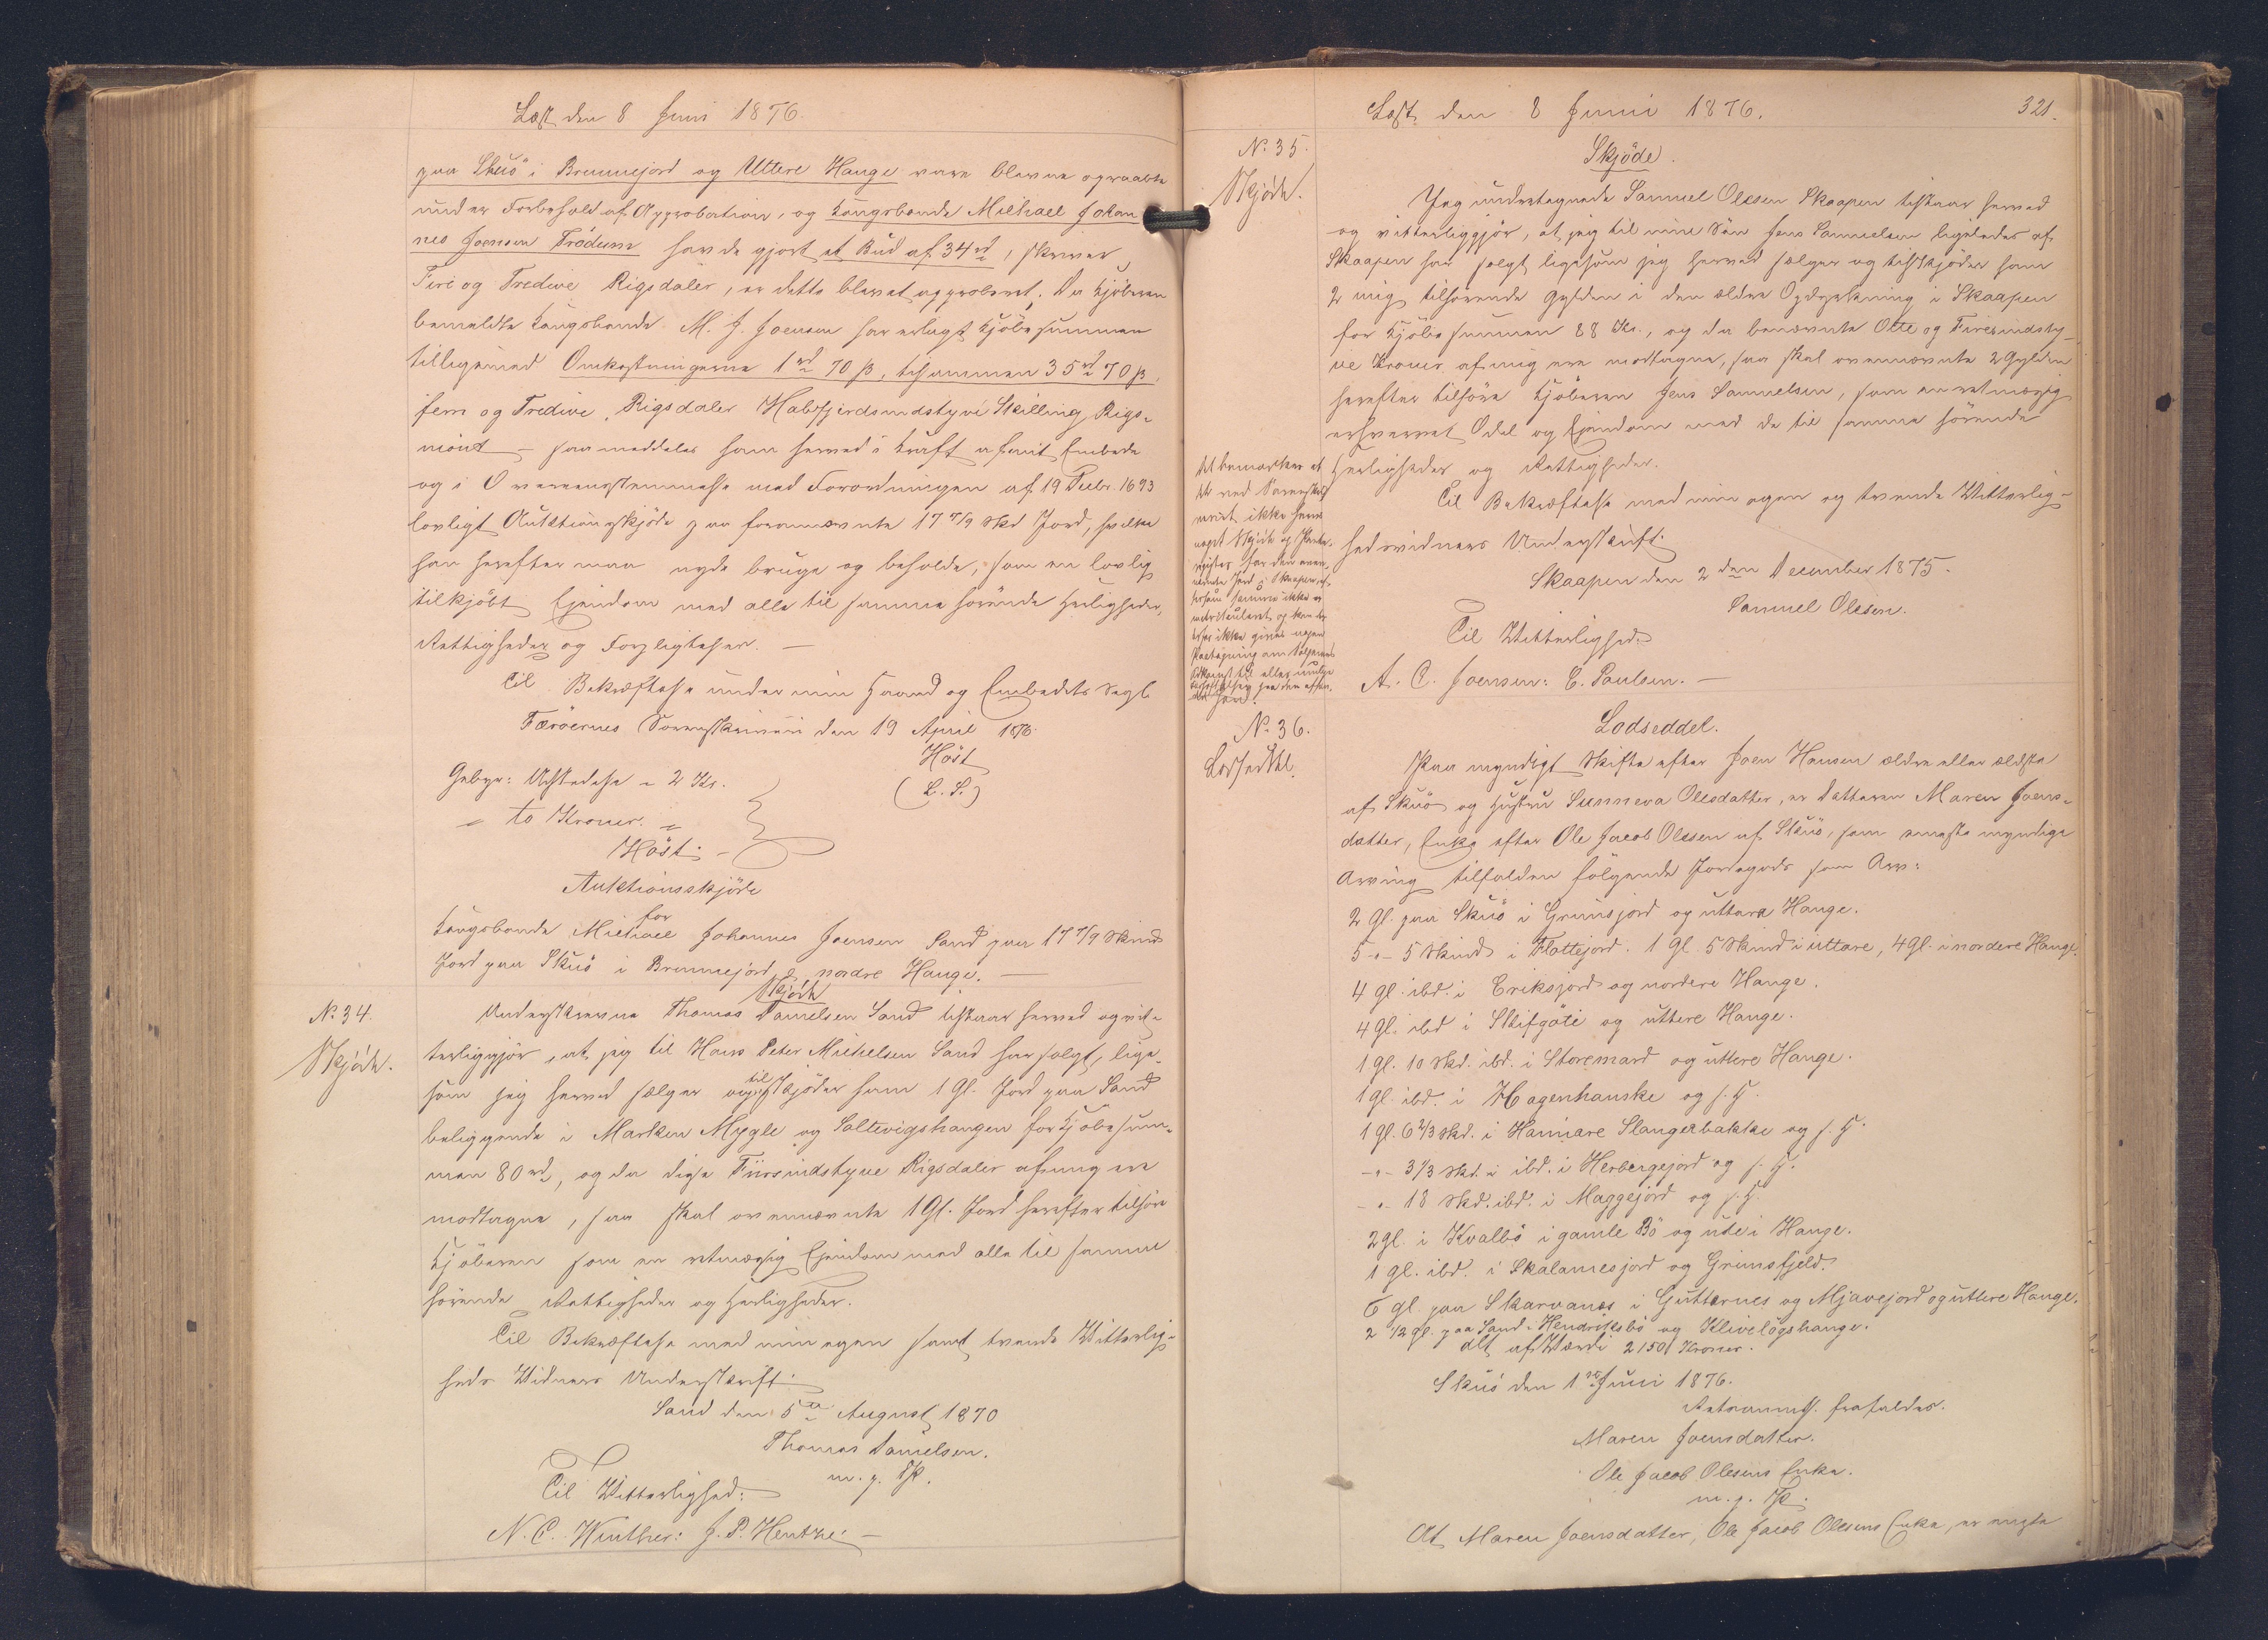 Læst den 8 Juni 1876.
paa Skuö i Brunnejord og Uttere Hauge vare blevne opraabte
under Forbehold af Approbation, og Kongsbonde Michael Johan
nes Joensen Trödum havde gjort et Bud af 34 rd, skriver
Fire og Tredive Rigsdaler, er dette blevet approberet. Da Kjöberen
bemeldte Kongsbonde M. J. Joensen har erlagt Kjöbesummen
tilligemed Omkostningerne 1 rd 70 β, tilsammen 35 rd 70 β,
fem og Tredive Rigsdaler Halvfjerdsindstyve Skilling Rigs-
mönt – saa meddeles ham herved i Kraft af mit Embede
og i Overeensstemmelse med Forordningen af 19 Decbr. 1693
lovligt Auktionsskjöde paa forannævnte 17 7/9 Skd Jord, hvilke
han herefter maa nyde bruge og beholde, som en lovlig
tilkjöbt Ejendom med alle til samme hörende Herligheder,
Rettigheder og Forpligtelser. —
Til Bekræftelse under min Haand og Embedets Segl.
Færöernes Sorenskriveri den 19 April 1876.
Höst
(L. S.)
Gebyr: Udstedelse - 2 Kr.
" to Kroner. "
Höst. -
Auktionsskjöde
for
Kongsbonde Michael Johannes Joensen Sand paa 17 7/9 Skind
Jord paa Skuö i Brunnejord & nordre Hauge. —
No. 34.
Skjöde.
Skjöde
Underskrevne Thomas Danielsen Sand tilstaar herved og vit-
terliggjör, at jeg til Hans Peter Michelsen Sand har solgt, lige-
som jeg herved sælger og tilskjöder ham 1 Gl. Jord paa Sand
beliggende i Marken Mygle og Saltevigshaugen for Kjöbesum-
men 80 rd, og da disse Fiirsindstyve Rigsdaler af mig ere
modtagne, saa skal ovennævnte 1 Gl. Jord herefter tilhöre
Kjöberen som en retmæssig Ejendom med alle til samme
hörende Rettigheder og Herligheder.
Til Bekræftelse med min egen samt tvende Vitterlig-
heds Vidners Underskrift.
Sand den 5te August 1870
Thomas Danielsen.
m. p. P.
Til Vitterlighed:
N. C. Winther: J. P. Hentze: —
Læst den 8 Juni 1876.
321.
No. 35.
Skjöde.
Skjöde.
Jeg undertegnede Samuel Olesen Skaapen tilstaar herved
og vitterliggjör, at jeg til min Sön Jens Samuelsen ligeledes af
Skaapen har solgt ligesom jeg herved sælger og tilskjöder ham
2 mig tilhörende Gylden i den ældre Opdyrkning i Skaapen
for Kjöbesummen 88 Kr., og da benævnte Otte og Firesindsty-
ve Kroner af mig ere modtagne, saa skal ovennævnte 2 Gylden
herefter tilhöre Kjöberen Jens Samuelsen, som en retmæssig
erhvervet Odel og Ejendom med de til samme hörende
Herligheder og Rettigheder.
Til Bekræftelse med min egen og tvende Vitterlig-
hedsvidners Underskrift.
Skaapen den 2den December 1875.
Samuel Olesen.
Til Vitterlighed:
A. C. Joensen: C. Poulsen. —
Det bemærkes at
der ved Sorenskri-
veriet ikke findes
noget Skjöde og Pante-
register for den oven-
nævnte Jord i Skaapen ef-
tersom samme ikke er
matrikuleret og kan der-
for ikke gives nogen
Paategning om Sælgerens
Adkomst til eller mulige
Hæftelser paa den afhæn-
dede Jord.
No. 36.
Lodseddel.
Lodseddel.
Paa myndigt Skifte efter Joen Hansen ældre eller ældste
af Skuö og Hustru Sunneva Olesdatter, er Datteren Maren Joens-
datter, Enke efter Ole Jacob Olesen af Skuö, som eneste myndige
Arving tilfalden fölgende Jordegods som Arv:
2 Gl. paa Skuö i Grimsjord og uttere Hauge.
5 -"- 5 Skind i Flottejord. 1 Gl 5 Skind i uttere, 4 Gl. i nordere Hauge.
4 gl. ibd. i Eriksjord og nordere Hauge.
4 gl. ibd i Skifgöte og uttere Hauge.
1 gl. 10 Skd. ibd. i Storemard og uttere Hauge.
1 gl. ibd. i Hagenhauske og s. H.
1 gl. 6 2/3 Skd. i Hannare Slangerbakke og s. H.
-"- 3 1/3 Skd. i ibd. i Herbergejord og s. H.
-"- 18 Skd. ibd. i Maggejord og s. H.
2 gl. i Kvalbö i gamle Bö og ude i Hauge.
1 gl. ibd. i Skalamesjord og Grimsfjeld.
6 gl. paa Skarvanes i Guttarnes og Mjavejord og uttere Hauge.
2 1/2 gl. paa Sand i Hendriksbö og Klivelögshauge.
alt af Værdi 2150 Kroner.
Skuö den 1ste Juni 1876.
Retvunnet. frafaldes.
Maren Joensdatter.
Ole Jacob Olesens Enke.
m. p. P.
At Maren Joensdatter, Ole Jacob Olesens Enke, er eneste